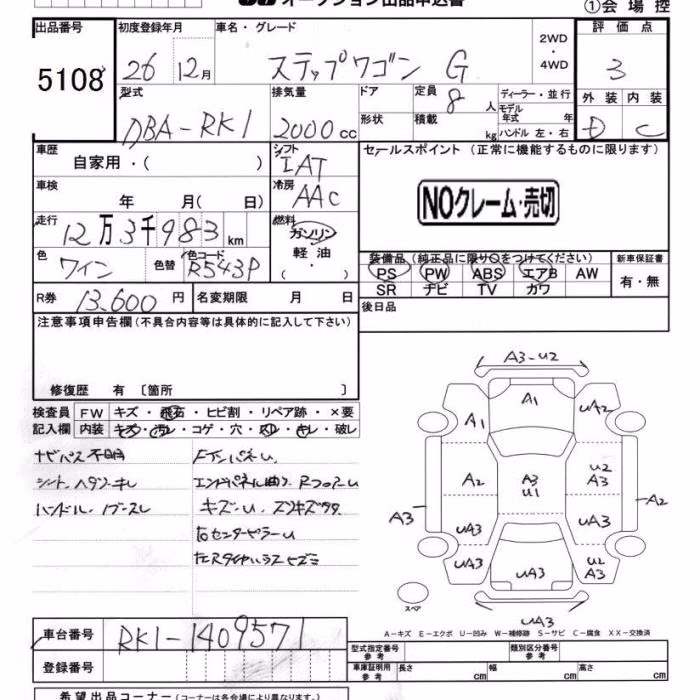 オークション出品申込書
①会場控
出品番号 初度登録年月 車名・グレード 評価点
5108 26 12月 ステップワゴン G 2WD・4WD 3
型式 排気量 ドア 定員 ディーラー・並行 外装 内装
DBA-RK1 2000cc 8人 モデル年式 年 D C
形状 積載 kg ハンドル 左・右
車歴 シフト セールスポイント (正常に機能するものに限ります)
自家用・( ) IAT
車検 冷房
年 月(日) AAC NOクレーム・売切
走行 燃料
12万3千983km ガソリン
軽油
(・)
色 色替 色コード 装備品(純正品に限り○をつけてください) 新車保証書
ワイン R543P PS PW ABS エアB AW 有・無
SR ナビ TV カワ
R券 13.600円 名変期限 月 日 後日品
注意事項申告欄(不具合内容等は具体的に記入して下さい)
修復歴 有 〔箇所 〕
検査員 FW キズ・飛石・ヒビ割・リペア跡・×要
記入欄 内装 キズ・汚レ・コゲ・穴・スレ・キレ・破レ
ナビパス不明
シート、ヘタリ・キレ
ハンドル、ノブスレ
キズ・U、
右センターピラーU
A3-U2
A1
A1 UA2
A2 A3 U1 U2 A3
A3 A2
UA3 UA3
UA3 UA3 U2 A3
UA3
スペア
A-キズ E-エクボ U-凹み W-補修跡 S-サビ C-腐食 XX-交換済
車台番号 RK1-1409571
型式指定番号 参考 類別区分番号 参考
登録番号
車庫証明用 参考 長さ cm 幅 cm 高さ cm
希望出品コーナー(コーナーは各会場により異なります。)